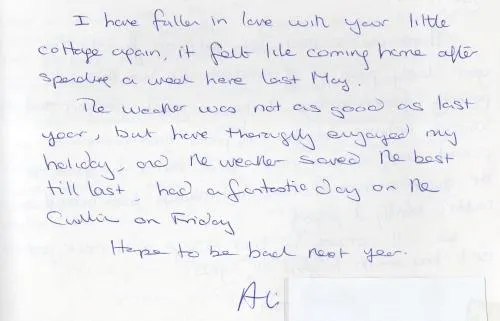 I have fallen in love with your little
cottage again, it felt like coming home after
spending a week here last May.
The weather was not as good as last
year, but have thoroughly enjoyed my
holiday, and the weather saved the best
till last, had a fantastic day on the
Cuillin on Friday
Hope to be back next year.
Ali